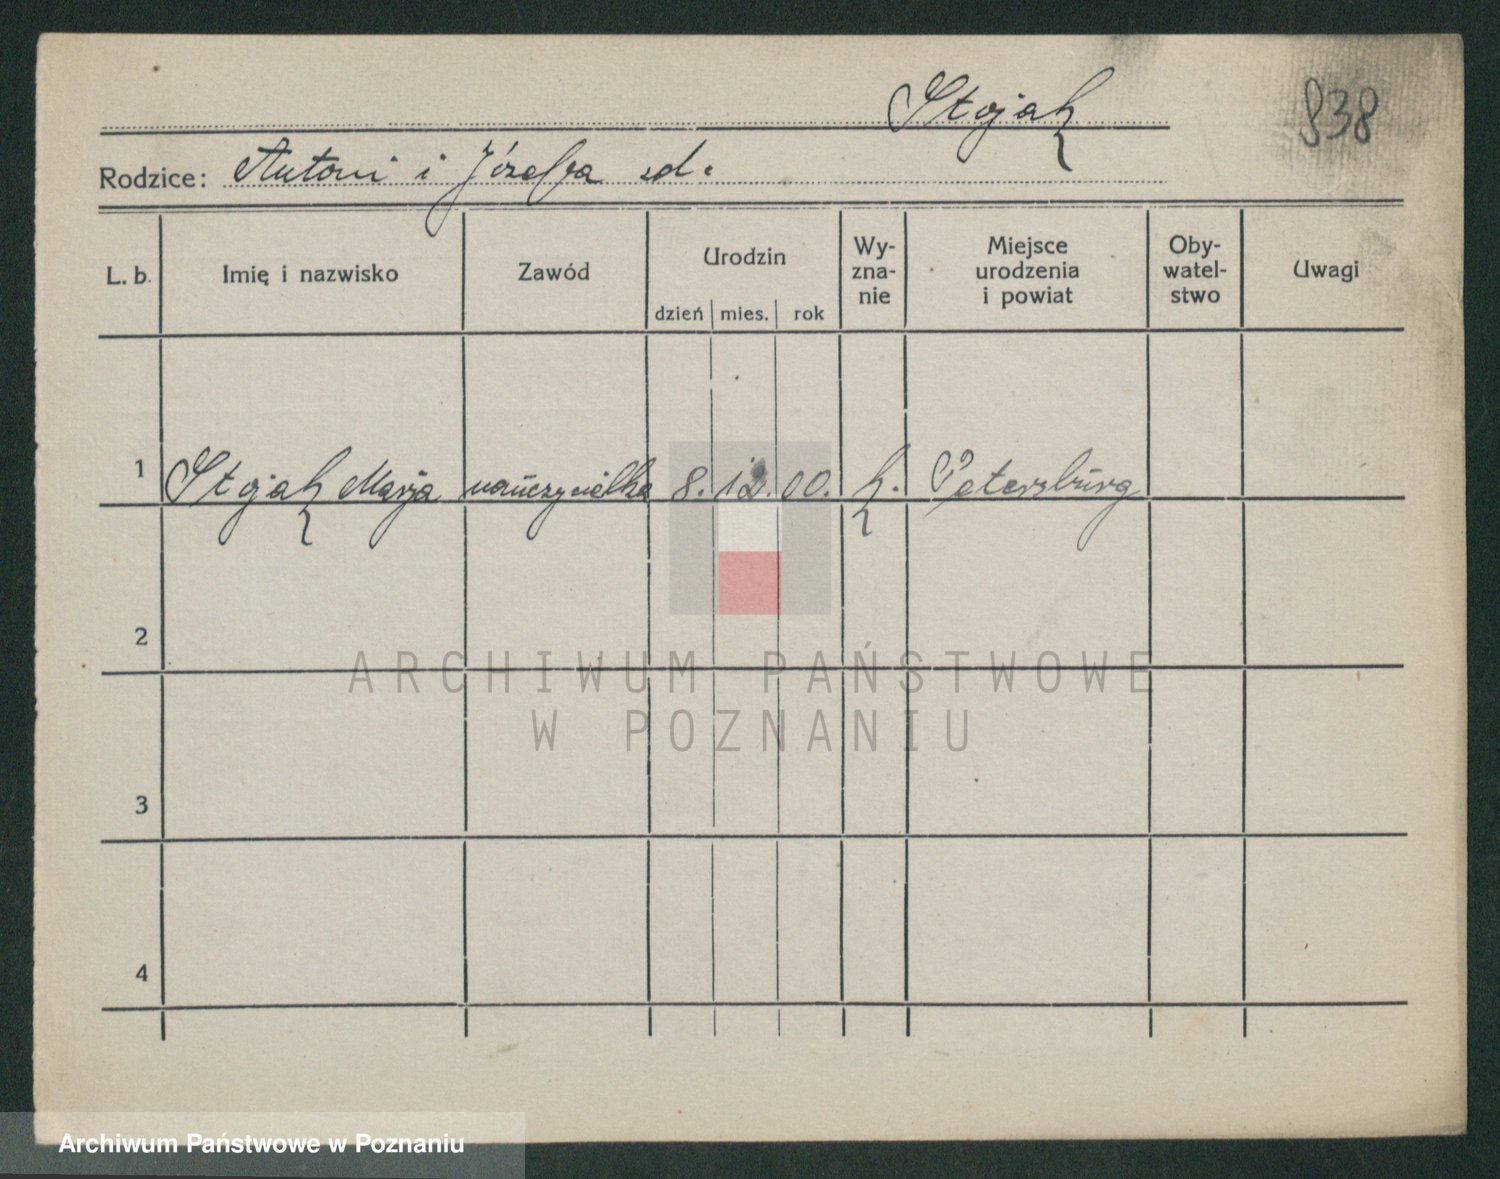 Stojak
838
Rodzice: Antoni i Józefa zd.
L. b. Imię i nazwisko Zawód Urodzin dzień mies. rok Wy-zna-nie Miejsce urodzenia i powiat Oby-watel-stwo Uwagi
1 Stojak Marja nauczycielka 8. 12. 00. k. Petersburg
2
ARCHIWUM PAŃSTWOWE
W POZNANIU
3
4
Archiwum Państwowe w Poznaniu